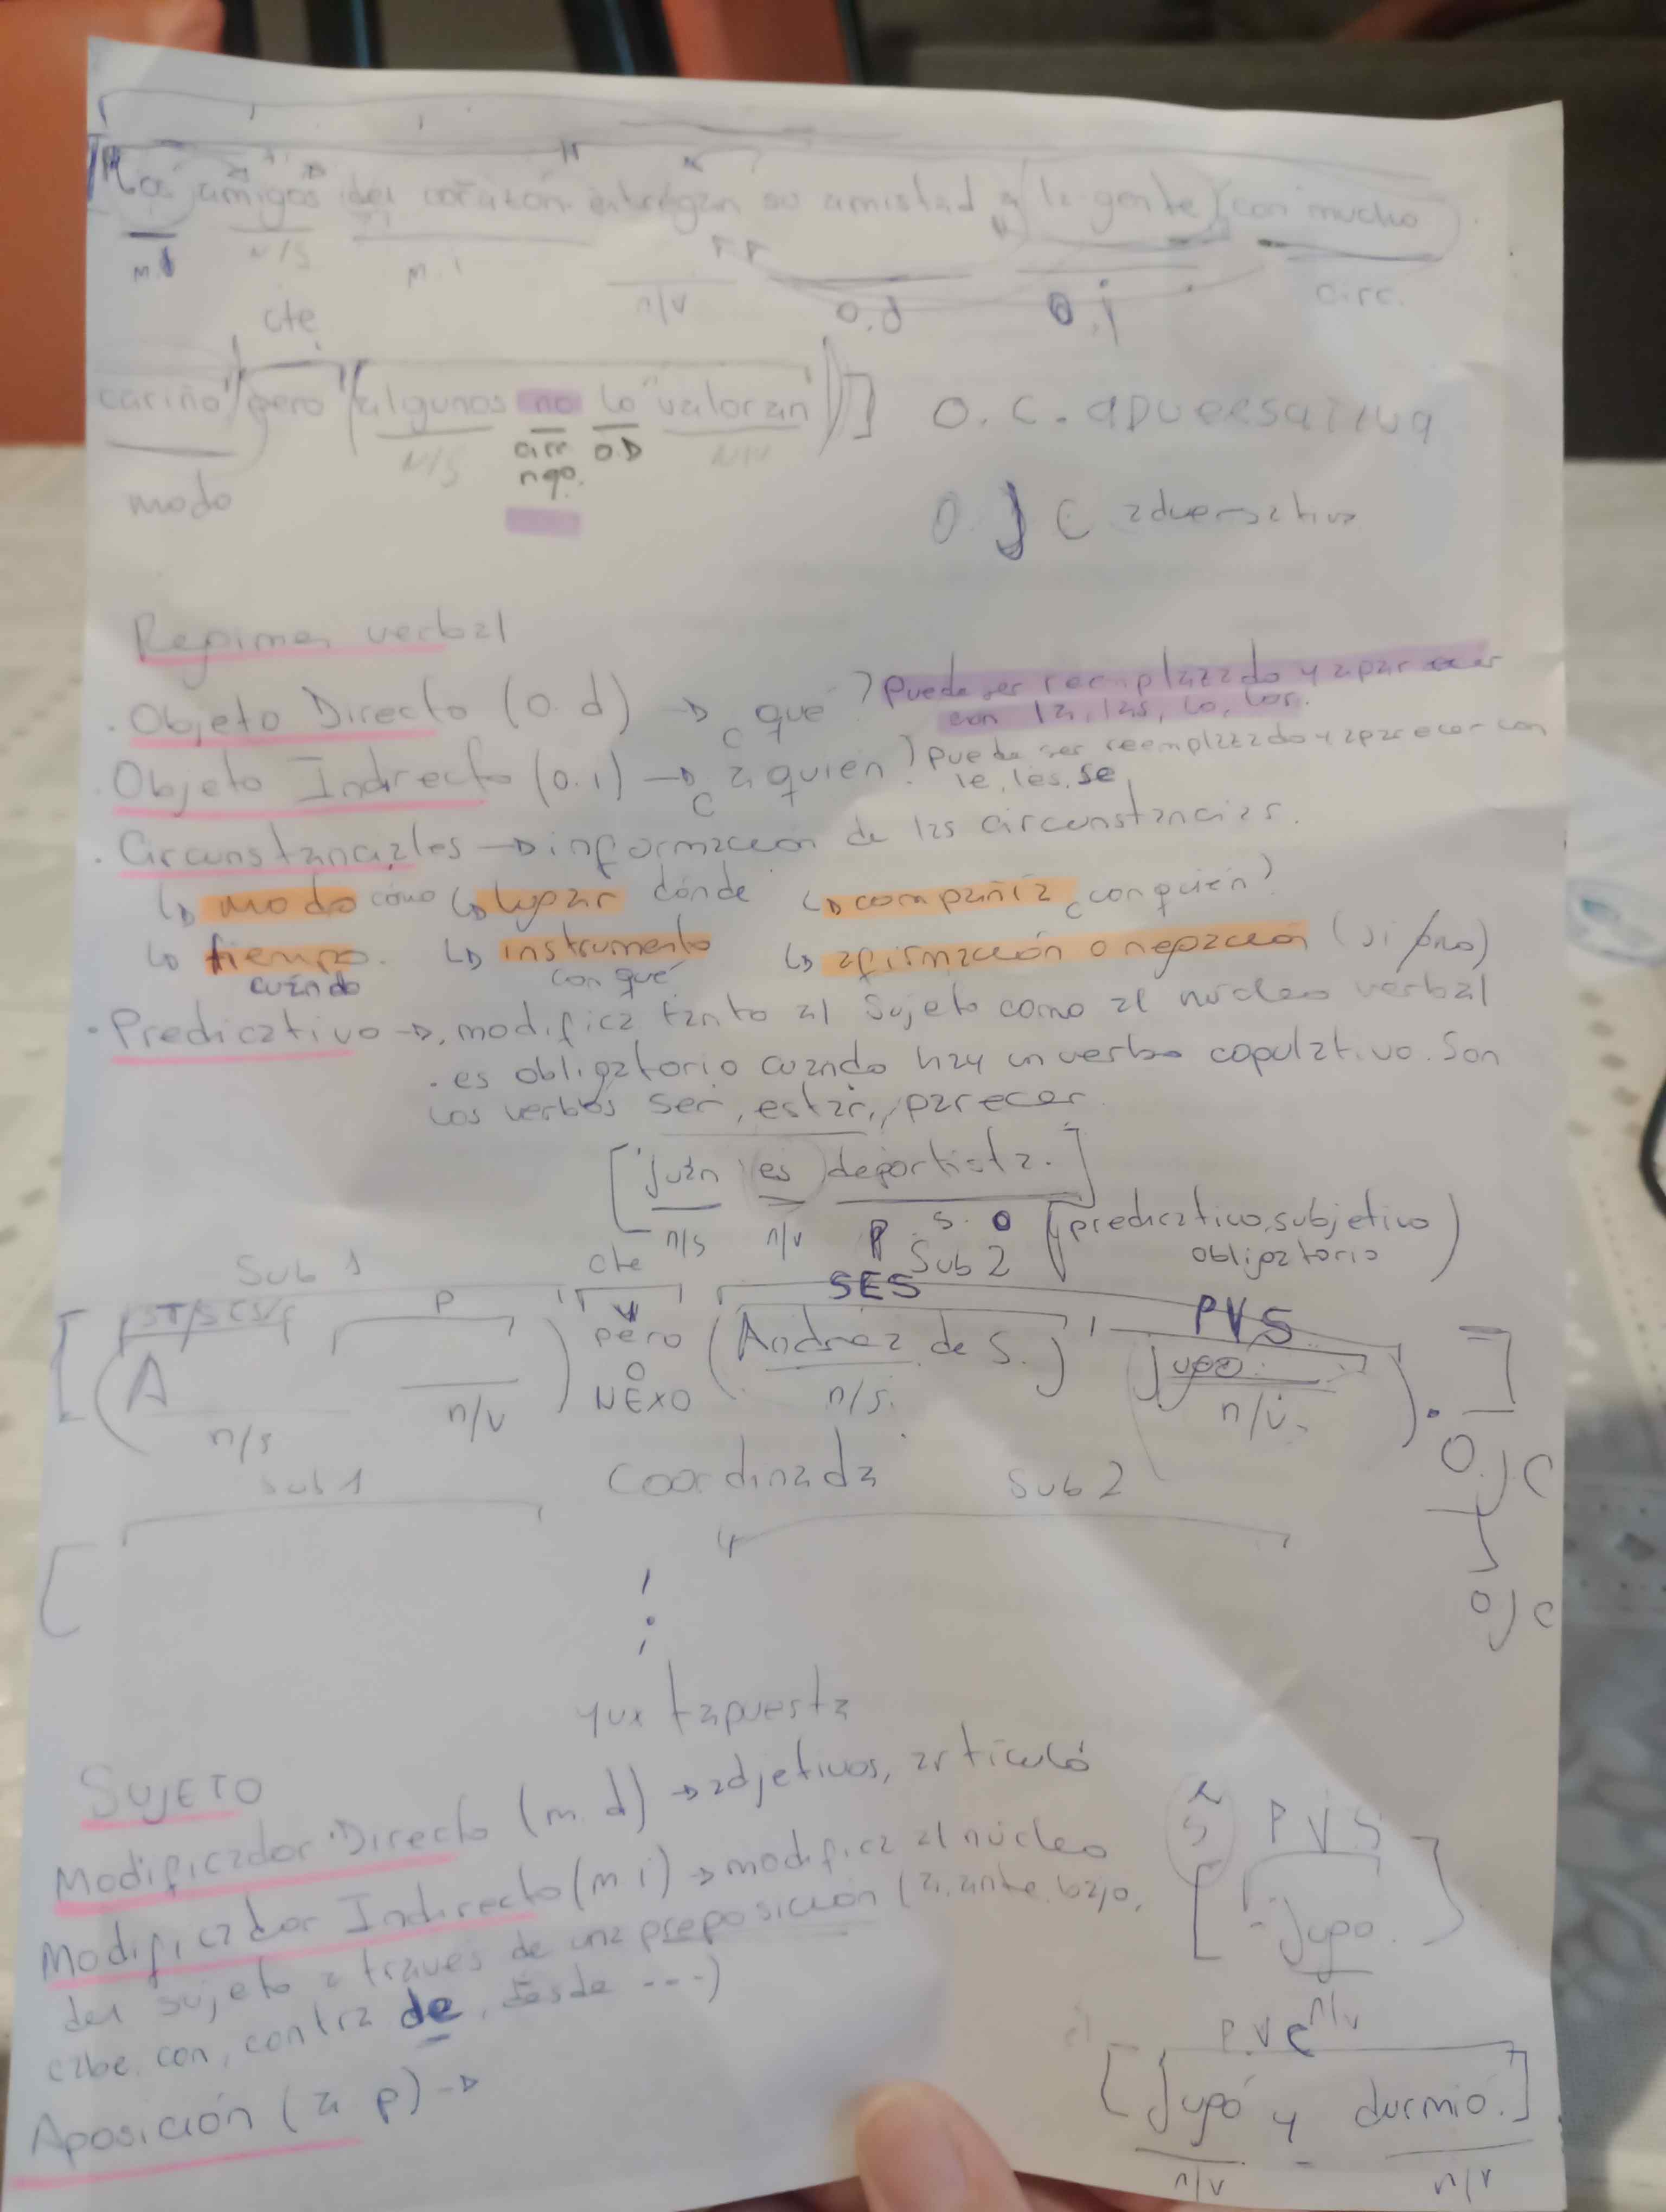 amigos del corazón entregan su amistad a la gente con mucho
m.d n/s m.i n/v o.d o.i circ.
cte
cariño pero algunos no lo valoran] O.C. adversativa
n/s circ ngo. O.D n/v
modo
O. J C adversativa
Regimen verbal
. Objeto Directo (o.d) → ¿qué? Puede ser reemplazado y aparecer con la, las, lo, los.
. Objeto Indirecto (o.i) → ¿a quién? Puede ser reemplazado y aparecer con le, les, se
. Circunstanciales → información de las circunstancias.
↳ modo cómo ↳ lugar dónde ↳ compañía ¿con quién?
↳ tiempo. cuándo ↳ instrumento con qué ↳ afirmación o negación (si / no)
. Predicativo → . modifica tanto al sujeto como al núcleo verbal
. es obligatorio cuando hay un verbo copulativo. Son
los verbos ser, estar, parecer
[Juan es deportista.]
n/s n/v P. S. O (predicativo, subjetivo obligatorio)
Sub 1 cte Sub 2
P SES PVS
[(A ) pero (Andrea de S. Jugo.).]
n/s n/v O NEXO n/s. n/v.
O.JC
Coordinada
OJC
Sub 1 Sub 2
[
,
;
yuxtapuesta
SUJETO
Modificador Directo (m.d) → adjetivos, artículo
Modificador Indirecto (m i) → modifica al núcleo
del sujeto a través de una preposición (a, ante, bajo,
cabe, con, contra de, desde ---)
Aposición (a p) →
P V S
[Jugo.]
n/v
P.V C
[Jugó y durmió.]
n/v n/v